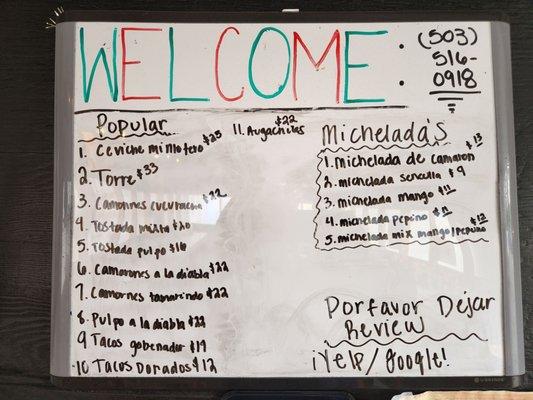 WELCOME:
(503)
516-
0918
Popular
1. Ceviche mi filotero $25
2. Torre $33
3. Camarones cucuracha $22
4. Tostada mixta $20
5. Tostada pulpo $16
6. Camarones a la diabla $22
7. Camarnes tamarindo $22
8. Pulpo a la diabla $22
9 Tacos gobenador $19
10 Tacos Dorados $12
11. Augachiles $22
Michelada's
1. Michelada de camaron $13
2. michelada sencilla $9
3. michelada mango $11
4. michelada pepino $11
5. michelada mix mango/pepino $12
Porfavor Dejar
Review
¡Yelp/Google!